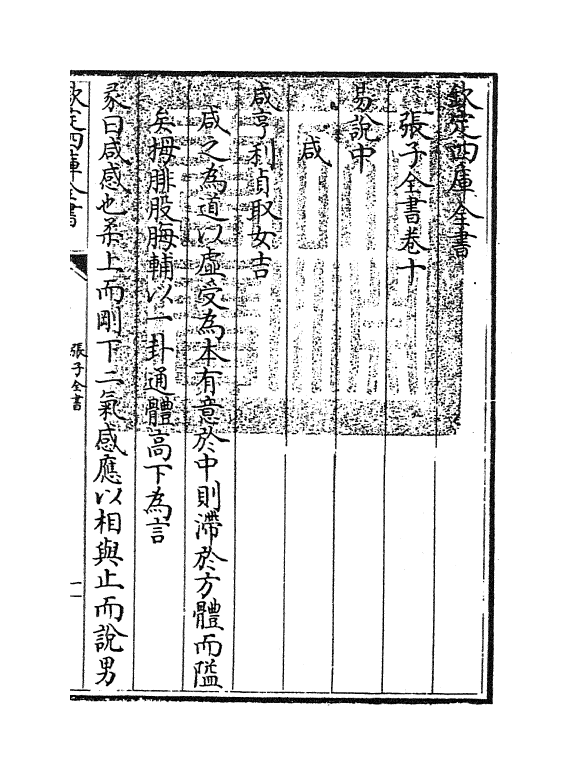 欽定四庫全書
張子全書卷十
易說中
咸
咸亨利貞取女吉
咸之為道以虛受為本有意於中則滯於方體而隘
矣拇腓股脢輔以一卦通體高下為言
彖曰咸感也柔上而剛下二氣感應以相與止而說男
欽定四庫全書
張子全書
一